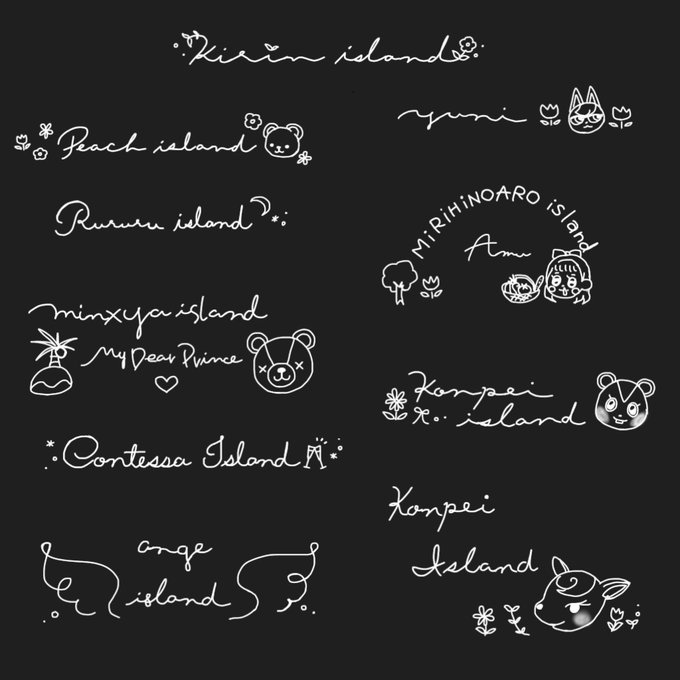 Kirin island
Peach island
Rururu island
minxya island
My Dear Prince
Contessa Island
ange
island
yuni
MiRiHiNOARO island
Amu
Konpei
island
Konpei
Island